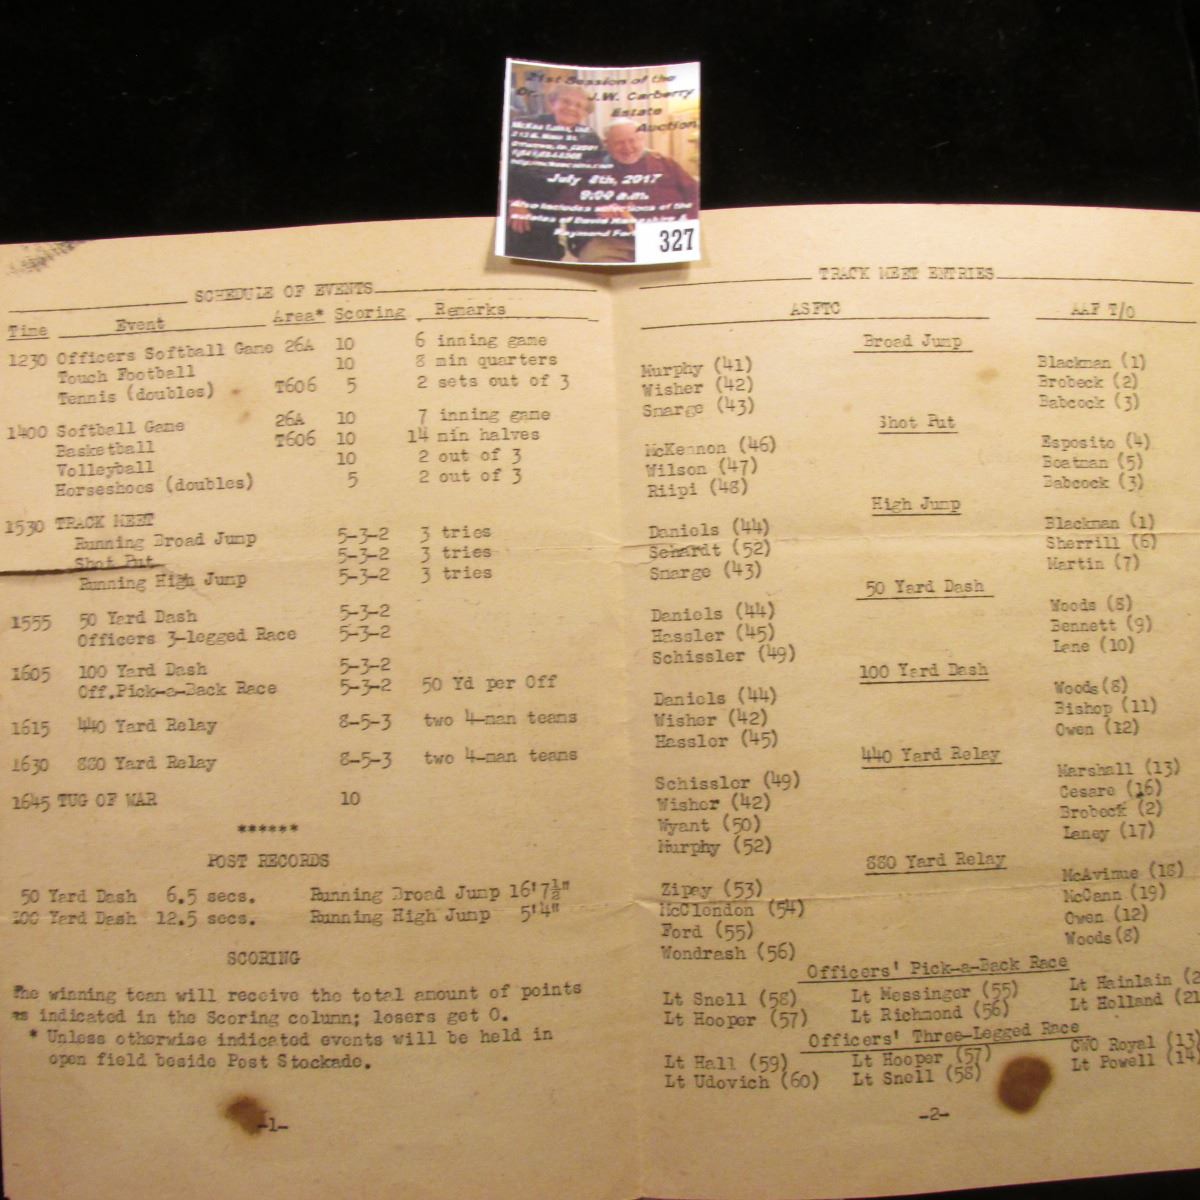 21st Session of the
Dr. J.W. Carberry
Estate
Auction
McKee Coins, Ltd.
July 8th, 2017
9:00 a.m.
Also includes selections of the
estates of David Hampshire &
Raymond
327
SCHEDULE OF EVENTS
Time Event Area* Scoring Remarks
1230 Officers Softball Game 26A 10 6 inning game
Touch Football 10 8 min quarters
Tennis (doubles) T606 5 2 sets out of 3
1400 Softball Game 26A 10 7 inning game
Basketball T606 10 14 min halves
Volleyball 10 2 out of 3
Horseshoes (doubles) 5 2 out of 3
1530 TRACK MEET
Running Broad Jump 5-3-2 3 tries
Shot Put 5-3-2 3 tries
Running High Jump 5-3-2 3 tries
1555 50 Yard Dash 5-3-2
Officers 3-legged Race 5-3-2
1605 100 Yard Dash 5-3-2
Off.Pick-a-Back Race 5-3-2 50 Yd per Off
1615 440 Yard Relay 8-5-3 two 4-man teams
1630 880 Yard Relay 8-5-3 two 4-man teams
1645 TUG OF WAR 10
******
POST RECORDS
50 Yard Dash 6.5 secs. Running Broad Jump 16'7½"
100 Yard Dash 12.5 secs. Running High Jump 5'4"
SCORING
The winning team will receive the total amount of points
as indicated in the Scoring column; losers get 0.
* Unless otherwise indicated events will be held in
open field beside Post Stockade.
-1-
TRACK MEET ENTRIES
ASFTC AAF T/O
Broad Jump
Murphy (41) Blackman (1)
Wisher (42) Brobeck (2)
Snarge (43) Babcock (3)
Shot Put
McKennon (46) Esposito (4)
Wilson (47) Boatman (5)
Riipi (48) Babcock (3)
High Jump
Daniels (44) Blackman (1)
Sehardt (52) Sherrill (6)
Snarge (43) Martin (7)
50 Yard Dash
Daniels (44) Woods (8)
Hassler (45) Bennett (9)
Schissler (49) Lane (10)
100 Yard Dash
Daniels (44) Woods(8)
Wisher (42) Bishop (11)
Hassler (45) Owen (12)
440 Yard Relay
Schissler (49) Marshall (13)
Wisher (42) Cesare (16)
Wyant (50) Brobeck (2)
Murphy (52) Laney (17)
880 Yard Relay
Zipay (53) McAvinue (18)
McClendon (54) McCann (19)
Ford (55) Owen (12)
Wondrash (56) Woods(8)
Officers' Pick-a-Back Race
Lt Snell (58) Lt Messinger (55) Lt Hainlain (2
Lt Hooper (57) Lt Richmond (56) Lt Holland (21
Officers' Three-Legged Race
Lt Hall (59) Lt Hooper (57) CWO Royal (13)
Lt Udovich (60) Lt Snell (58) Lt Powell (14
-2-